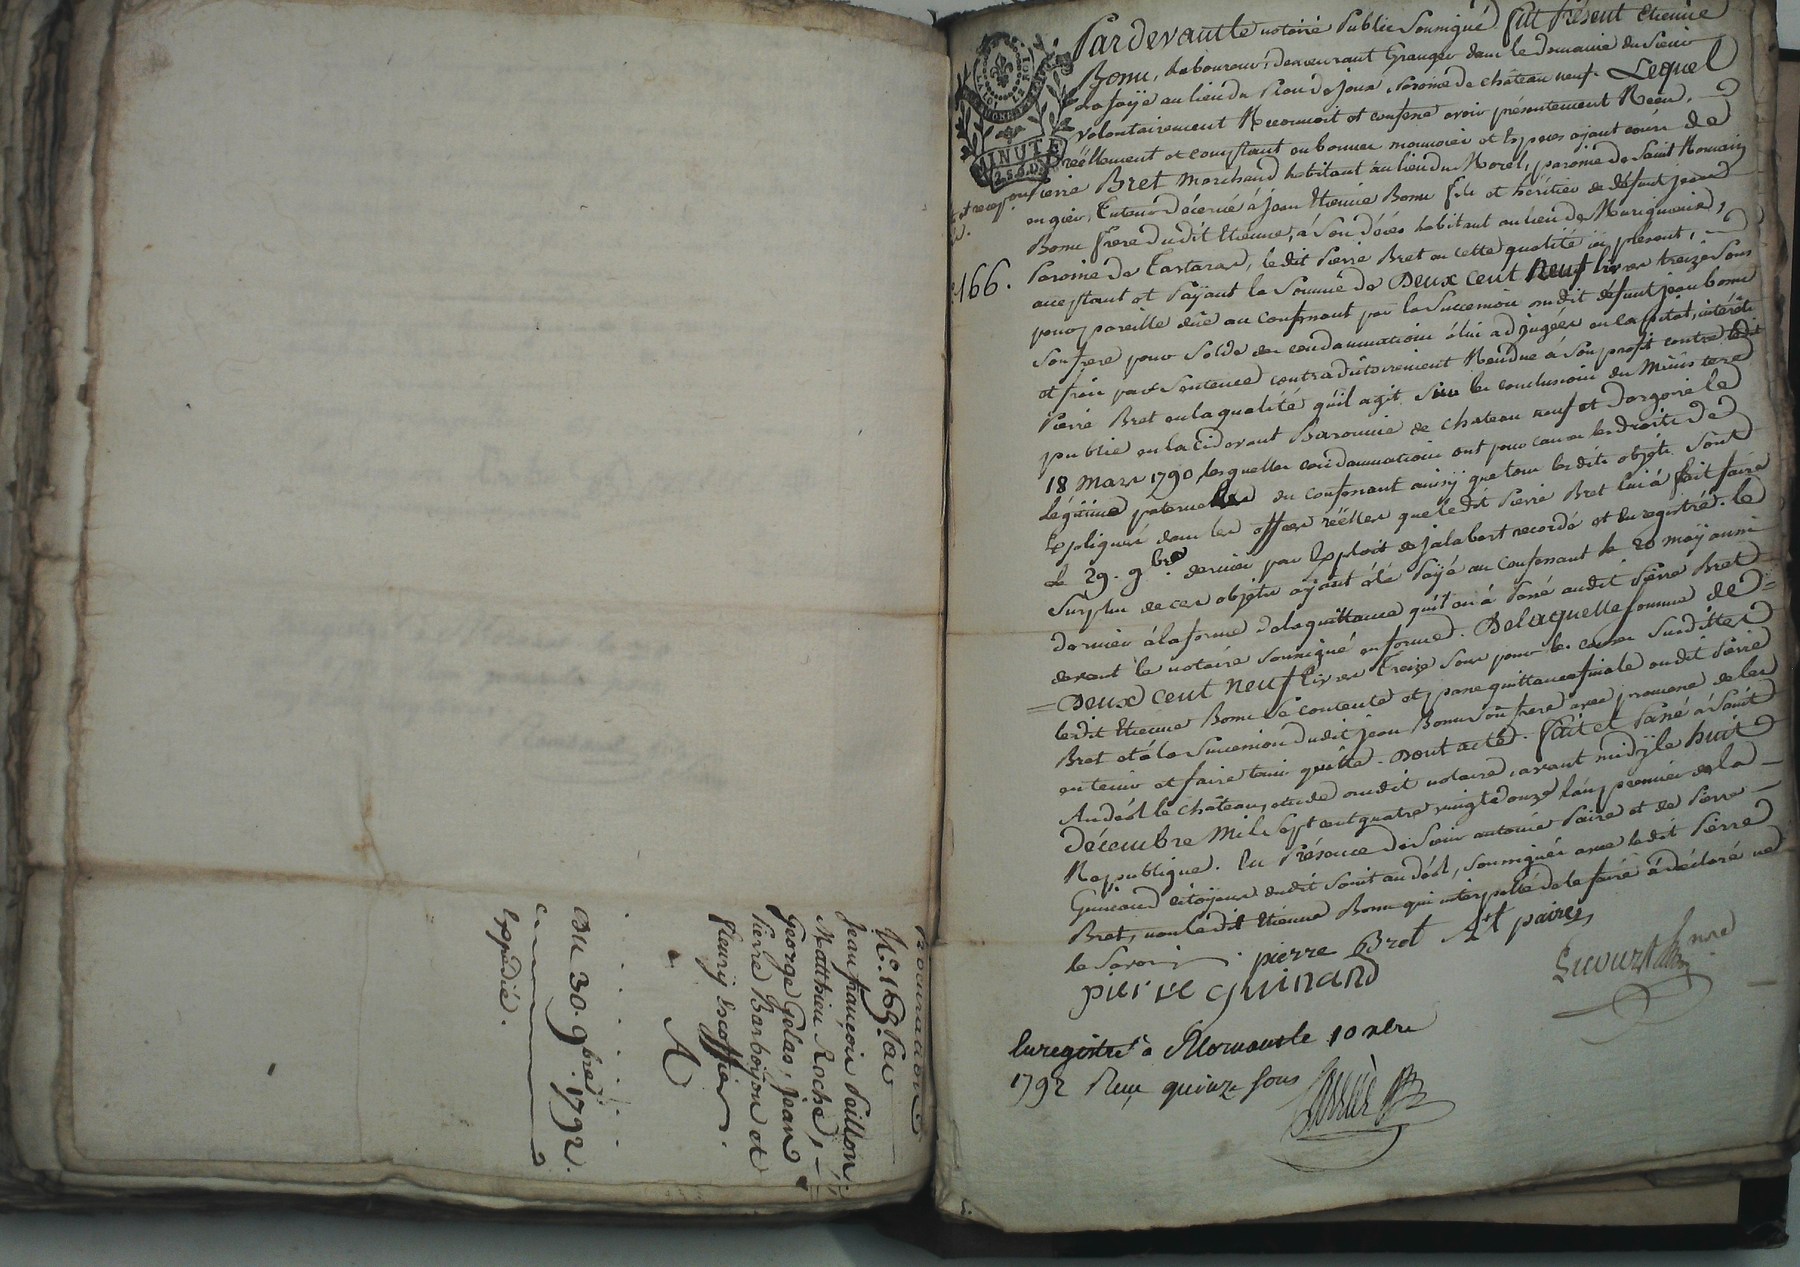 Procuration
N.° 169. Par
Jean françois Paillon,
Matthieu Roche,
George Gelas, jean
Pierre Barboyon et
fleury Escoffier.
A
Du 30. 9bre. 1792.
Expédié.
Pardevant le notaire Public Soussigné fut Présent Etienne
Bonu, Laboureur, demeurant Granger dans le domaine du Sieur
Lafaÿe au lieu du Plan de Joux Paroisse de Château neuf. Lequel
volontairement Reconnoit et confesse avoir présentement Receu,
réëllement et comptant en bonnes monnoies et Especes ajant cours de
Pierre Bret Marchand habitant au lieu du Morel, paroisse de Saint Romain
en gier, Tuteur décerné à Jean Etienne Bonu fils et héritier de défunt jean
Bonu frere dudit Etienne, à Son décès habitant au lieu de
Paroisse de Tartaras, ledit Pierre Bret en cette qualité ici présent,
acceptant et Païant la Somme de Deux cent Neuf livres treize Sous
pour pareille dûe au confessant par la Succession dudit défunt jean bonu
Son frere pour Solde des condamnations à lui adjugées en capital, intérêts
et frais par Sentence contradictoirement Rendue à Son profit contre ledit
Pierre Bret en la qualité qu'il agit Sur les conclusions du Ministere
public en la cidevant Baronnie de chateau neuf et dargoire le
18 Mars 1790, lesquelles condamnations ont pour causes les droits de
Légitime paternelle du confessant ainsy que tous lesdits objets Sont
Expliqués dans les offres réëlles que ledit Pierre Bret lui à fait faire
Le 29. 9bre. dernier par Exploit de jalabert recordé et Enregistré. le
Surplus de ces objets ajant été Païé au confessant le 20 maÿ aussi
dernier à la forme de la quittance qu'il en à Passé audit Pierre Bret
devant le notaire Soussigné en forme. De laquelle somme de
Deux cent neuf Livres Treize Sous pour les causes Susdittes
ledit Etienne Bonu Se contente et passe quittance finale audit Pierre
Bret et à la Succession dudit jean Bonu Son frere avec promesse de les
en tenir et faire tenir quitte. Dont acte. fait et Passé à Saint
Andéol le château, étude dudit notaire, avant midÿ le huit
décembre Mil Sept cent quatre vingt douze l'an premier de la
République. En Présence de Sieur antoine Paire et de Pierre
Guinand citoÿens dudit Saint andéol, soussignés avec ledit Pierre
Bret, non ledit Etienne Bonu qui interpellé de le faire à déclaré ne
le Savoir. pierre Bret At paire
pierre guinand
Enregistré à Mornant le 10 xbre
1792 Reçu quinze sous
et reception
166.
MINUTE
2.S.6.D.
LA LOI
LE ROI